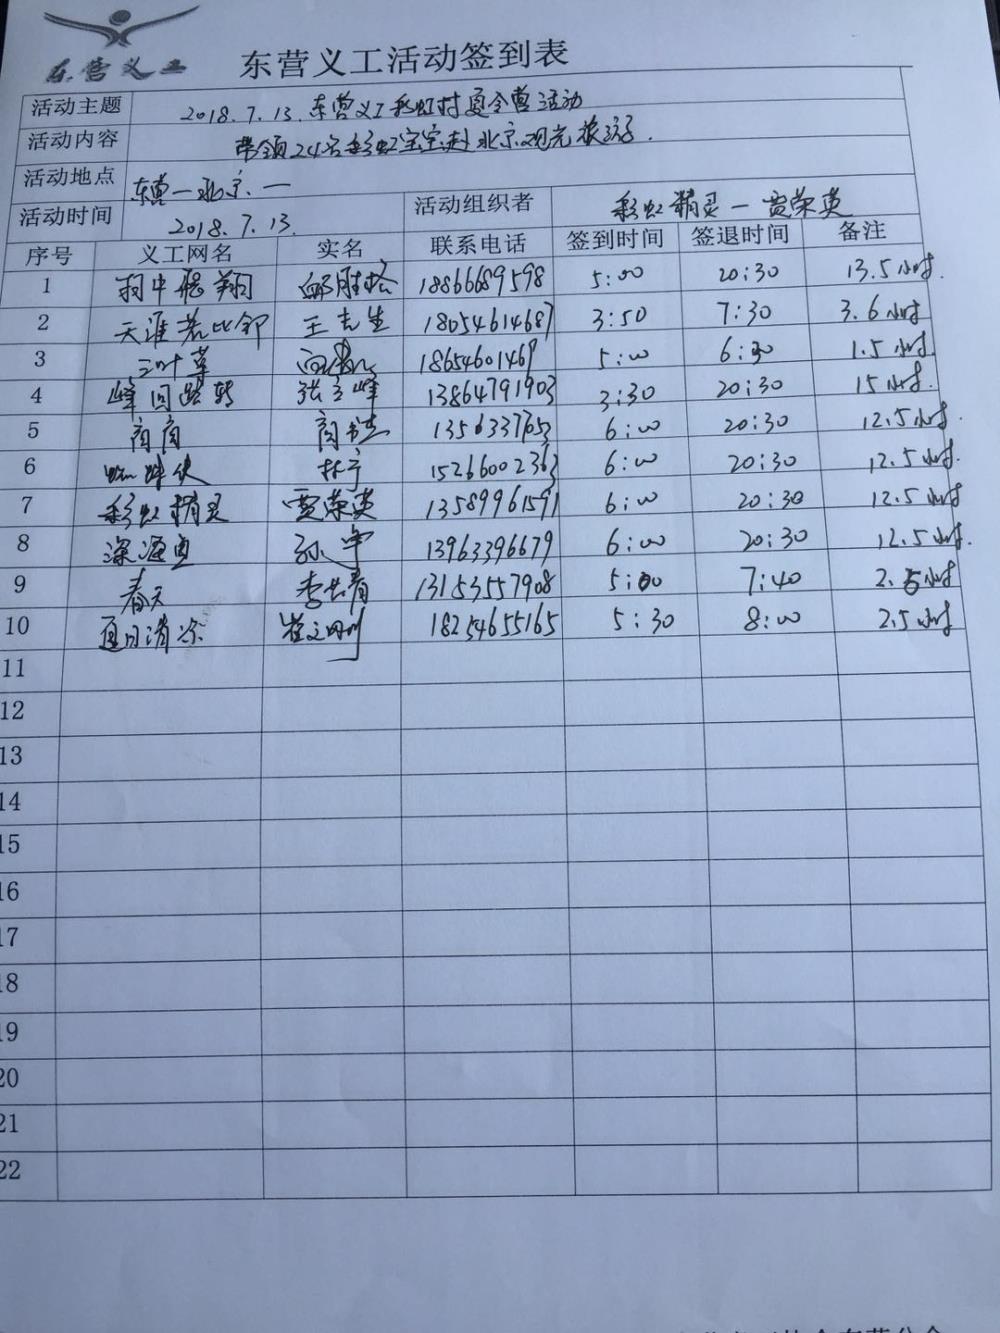 东营义工
东营义工活动签到表
活动主题 2018.7.13.东营义工彩虹村夏令营活动
活动内容 带领24名彩虹宝宝赴北京观光旅游.
活动地点 东营一北京.一
活动时间 2018.7.13. 活动组织者 彩虹精灵一贾荣英
序号 义工网名 实名 联系电话 签到时间 签退时间 备注
1 18866689598 5:00 20:30 13.5小时.
2 天涯若比邻 王志生 18054614687 3:50 7:30 3.6小时
3 三叶草 18654601469 5:00 6:30 1.5小时.
4 峰回路转 张立峰 13864791903 3:30 20:30 15小时.
5 商商 13563377653 6:00 20:30 12.5小时.
6 蜘蛛侠 林宁 15266002363 6:00 20:30 12.5小时.
7 彩虹精灵 贾荣英 13589961591 6:00 20:30 12.5小时
8 深海鱼 孙宁 13963396679 6:00 20:30 12.5小时.
9 春天 李共青 13153557908 5:00 7:40 2.5小时
10 夏日清凉 崔文明 18254655165 5:30 8:00 2.5小时
11
12
13
14
15
16
17
18
19
20
21
22